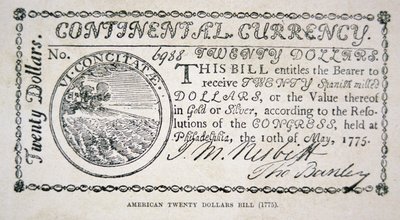 CONTINENTAL CURRENCY.
No. 6988 TWENTY DOLLARS.
Twenty Dollars.
VI CONCITATÆ.
THIS BILL entitles the Bearer to
receive TWENTY Spanish milled
DOLLARS, or the Value thereof
in Gold or Silver, according to the Reso-
lutions of the CONGRESS, held at
Philadelphia, the 10th of May, 1775.
J. M. Nesbitt
AMERICAN TWENTY DOLLARS BILL (1775).